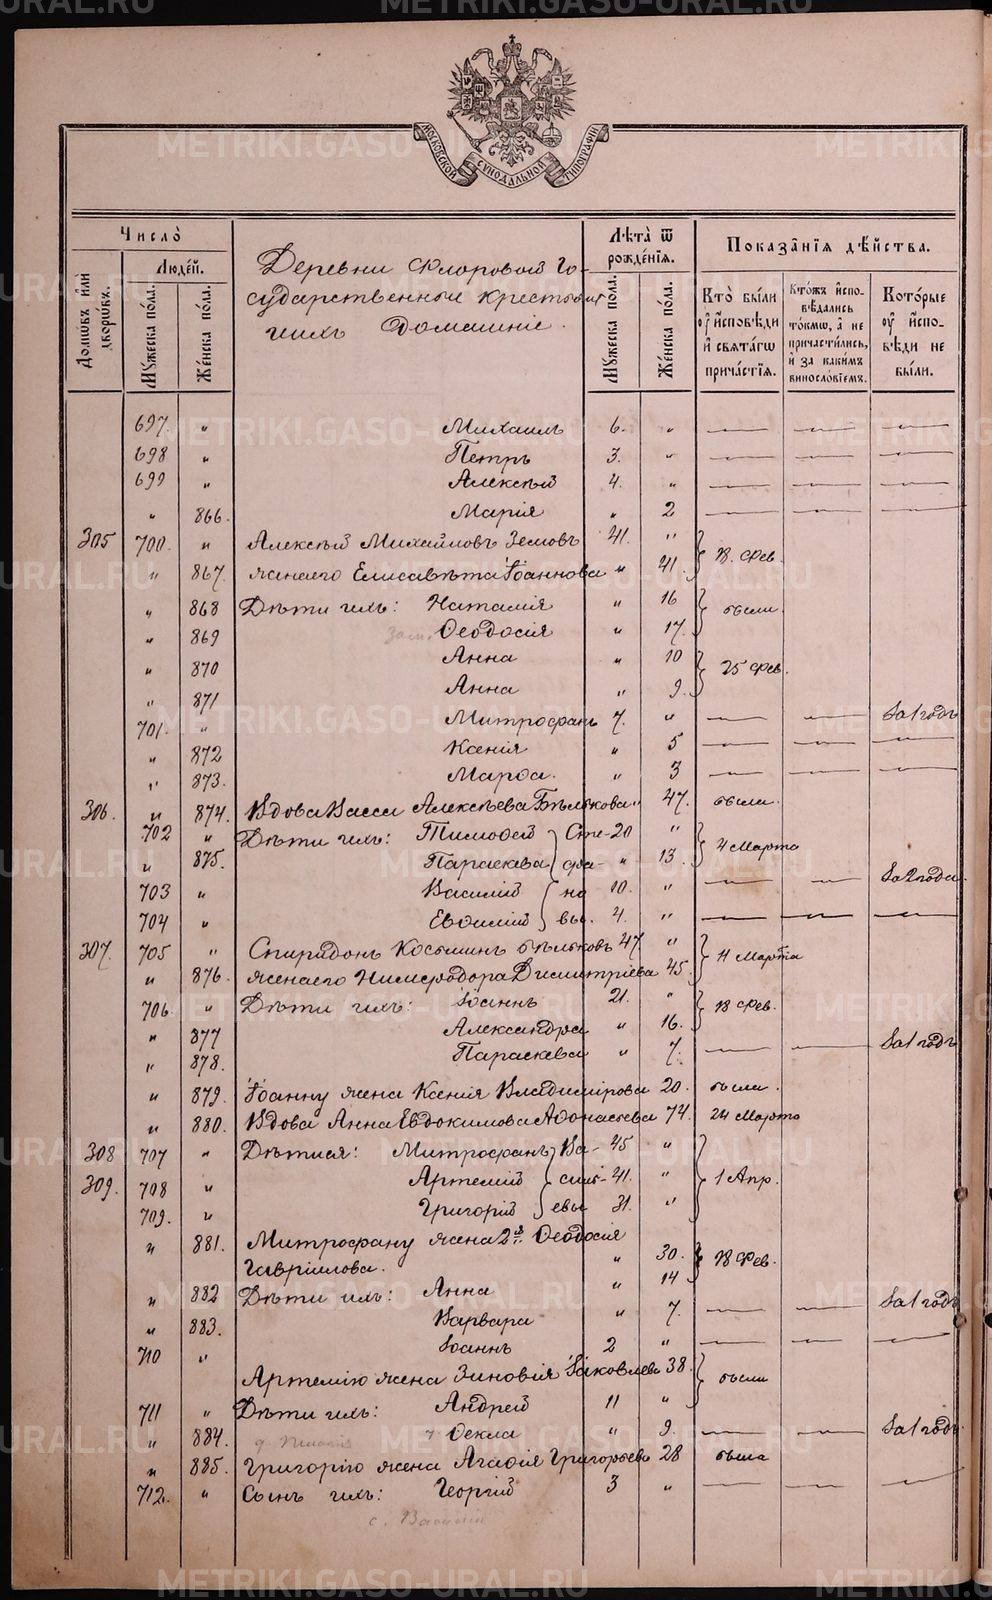 МОСКОВСКОЙ СѴНОДАЛЬНОЙ ТИПОГРАФІИ
Число̀
Домѡвъ и҆лѝ дворѡвъ.
Люде́й.
Мꙋ́жеска по́ла.
Же́нска по́ла.
Деревни Скоровой Го-
сударственные крестьяне
ихъ домашніе.
Лѣта̀ ѿ рожде́нїѧ.
Мꙋ́жеска по́ла.
Же́нска по́ла.
Показа̑нїѧ дѣ́йства.
Кто̀ бы́ли ᲂу҆ и҆сповѣди и҆ свѧта́гѡ прича́стїѧ.
Кто́жъ и҆спо- вѣ́дались то́кмѡ, а҆ не причасти́лись, и҆ за каки́мъ винослові́емъ.
Кото́рые ᲂу҆ и҆спо- вѣди не бы́ли.
697. „ Михаилъ 6. „ — — —
698 „ Петръ 3. „ — — —
699 „ Алексѣй 4. „ — — —
„ 866. Марія „ 2 — — —
305 700. „ Алексѣй Михайловъ Земовъ 41. „ 18. Фев.
„ 867. жена его Елисавѣта Іоаннова „ 41.
„ 868 Дѣти ихъ: Наталія „ 16 были.
„ 869 Ѳеодосія „ 17.
„ 870 Анна „ 10 25 Фев.
„ 871 Анна „ 9.
701. „ Митрофанъ 7. „ — — За 1 годъ
„ 872 Ксенія „ 5 — — —
„ 873. Марѳа. „ 3 — — —
306. „ 874. Вдова Васса Алексѣева Бѣлькова „ 47. была.
702 „ Дѣти ихъ: Тимоѳей Сте- 20 „ 4 Марта
„ 875. Параскева фа- „ 13.
703 „ Василій но 10. „ — — За 2 года.
704 „ Евѳимій вы. 4. „ — — —
307. 705 „ Спиридонъ Косьминъ Бѣльковъ 47 „ 11 Марта
„ 876. жена его Нимфодора Димитріева 45.
706. „ Дѣти ихъ: Іоаннъ 21. „ 18 Фев.
„ 877 Александра „ 16.
„ 878. Параскева „ 7. — — За 1 годъ
„ 879. Іоанну жена Ксенія Владимірова 20. была.
„ 880. Вдова Анна Евдокимова Аѳонасьева 74. 24 Марта
308 707 „ Дѣти ея: Митрофанъ Ва- 45 „ 1 Апр.
309. 708 „ Артемій силь- 41. „
709. „ Григорій евы 31. „
„ 881. Митрофану жена 2я Ѳеодосія
Гавріилова. „ 30. 18 Фев.
„ 882 Дѣти ихъ: Анна „ 14
„ 883. Варвара „ 7. — — За 1 годъ
710 „ Іоаннъ 2 „ — — —
Артемію жена Зиновія Іаковлева 38. были
711 „ Дѣти ихъ: Андрей 11 „
„ 884. Ѳекла „ 9. — — За 1 годъ
„ 885. Григорію жена Агаѳія Григорьева 28 была
712. „ Сынъ ихъ: Георгій 3 „ — — —
с. Василій
METRIKI.GASO-URAL.RU